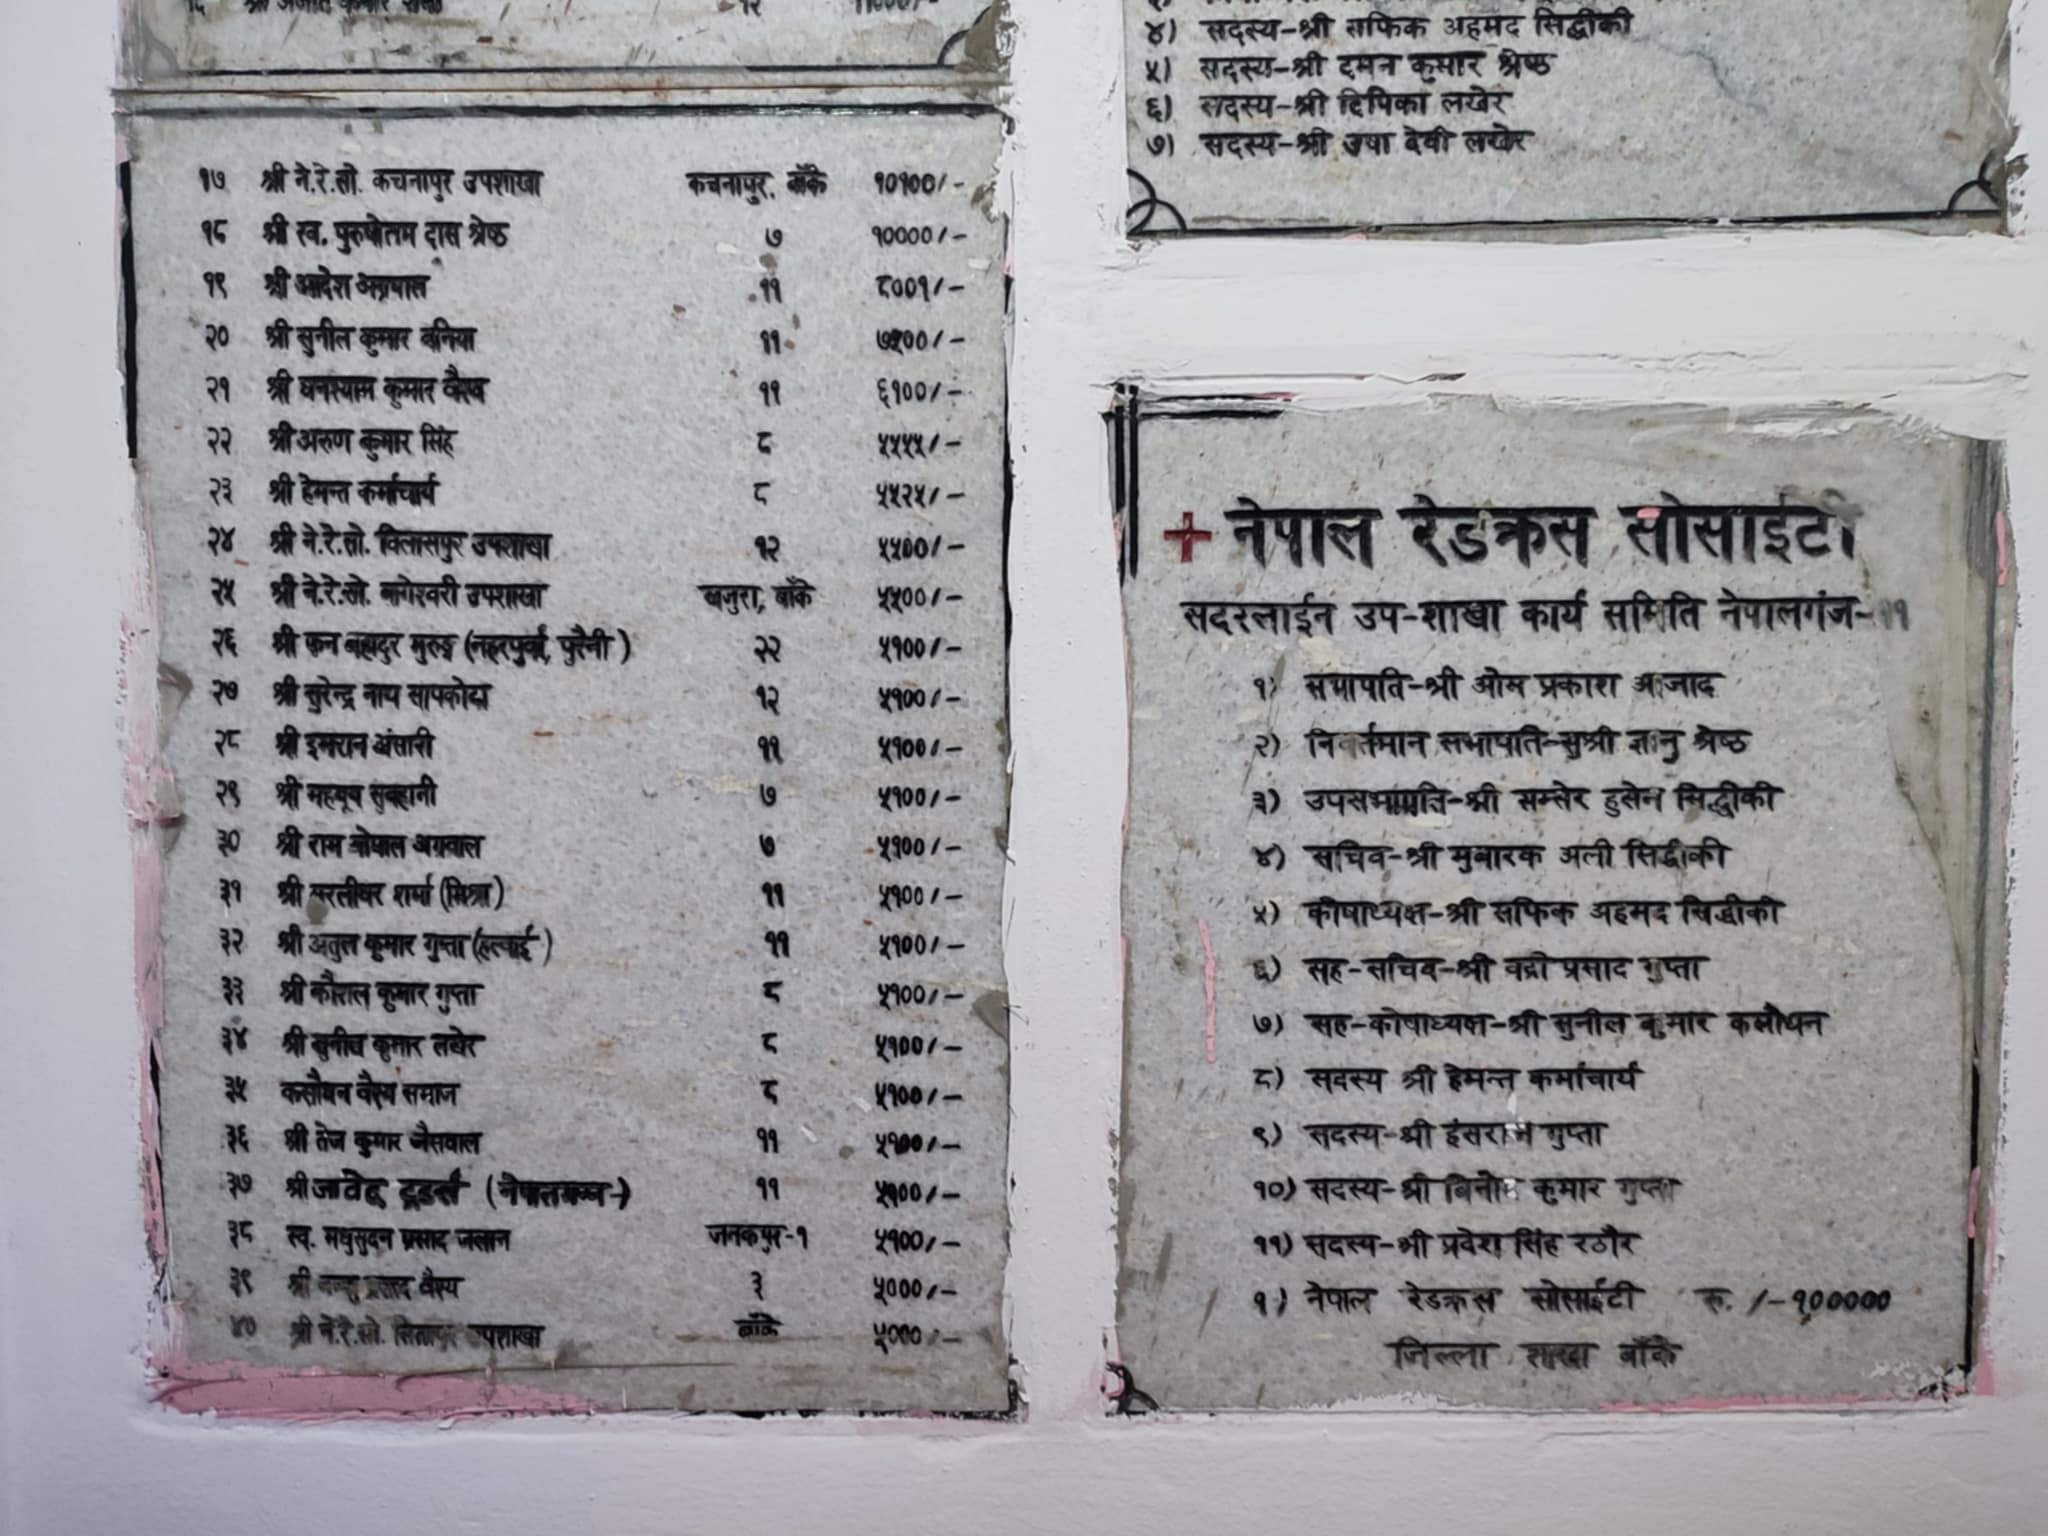 १६ श्री अजीत कुमार शर्मा १२ ११०००/-
१७ श्री ने.रे.सो. कचनापुर उपशाखा कचनापुर, बाँके १०१००/-
१८ श्री स्व. पुरुषोतम दास श्रेष्ठ ७ १००००/-
१९ श्री आदेश अग्रवाल ११ ८००१/-
२० श्री सुनील कुमार बनिया ११ ७५००/-
२१ श्री घनश्याम कुमार वैश्य ११ ६१००/-
२२ श्री अरुण कुमार सिंह ८ ५५५५/-
२३ श्री हेमन्त कर्माचार्य ८ ५५२५/-
२४ श्री ने.रे.सो. विलासपुर उपशाखा १२ ५५००/-
२५ श्री ने.रे.सो. बागेश्वरी उपशाखा खजुरा, बाँके ५५००/-
२६ श्री बहादुर (नहरपुर्वा, पुरैनी) २२ ५१००/-
२७ श्री सुरेन्द्र नाथ सापकोटा १२ ५१००/-
२८ श्री इमरान अंसारी ११ ५१००/-
२९ श्री महबूब सुबहानी ७ ५१००/-
३० श्री राम गोपाल अग्रवाल ७ ५१००/-
३१ श्री शर्मा (मिश्रा) ११ ५१००/-
३२ श्री अतुल कुमार गुप्ता (हलवाई) ११ ५१००/-
३३ श्री कौशल कुमार गुप्ता ८ ५१००/-
३४ श्री सुनील कुमार लखेर ८ ५१००/-
३५ कसौधन वैश्य समाज ८ ५१००/-
३६ श्री तेज कुमार जैसवाल ११ ५१००/-
३७ श्री जावेद ट्रेडर्स ११ ५१००/-
३८ स्व. मधुसुदन प्रसाद जलान जनकपुर-१ ५१००/-
३९ श्री प्रसाद वैश्य ३ ५०००/-
४० श्री ने.रे.सो. सितापुर उपशाखा बाँके ५०००/-
४) सदस्य-श्री सफिक अहमद सिद्धीकी
५) सदस्य-श्री दमन कुमार श्रेष्ठ
६) सदस्य-श्री दिपिका लखेर
७) सदस्य-श्री उषा देवी लखेर
+ नेपाल रेडक्रस सोसाईटी
सदरलाईन उप-शाखा कार्य समिति नेपालगंज-११
१) सभापति-श्री ओम प्रकाश आजाद
२) निवर्तमान सभापति-सुश्री ज्ञानु श्रेष्ठ
३) उपसभापति-श्री सम्सेर हुसेन सिद्धीकी
४) सचिव-श्री मुबारक अली सिद्धीकी
५) कोषाध्यक्ष-श्री सफिक अहमद सिद्धीकी
६) सह-सचिव-श्री वद्री प्रसाद गुप्ता
७) सह-कोषाध्यक्ष-श्री सुनील कुमार कसौधन
८) सदस्य श्री हेमन्त कर्माचार्य
९) सदस्य-श्री हंसराज गुप्ता
१०) सदस्य-श्री बिनोद कुमार गुप्ता
११) सदस्य-श्री प्रवेश सिंह रठौर
१) नेपाल रेडक्रस सोसाईटी रु. /-१०००००
जिल्ला शाखा बाँके